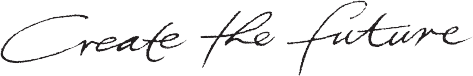 Create the future